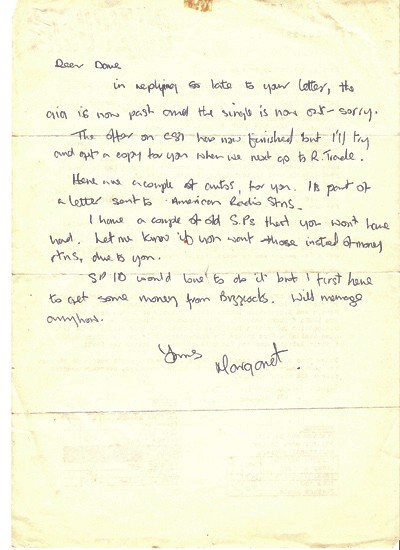 Dear Dave
in replying so late to your letter, the
gig is now past and the single is now out - sorry.
The offer on has now finished but I'll try
and get a copy for you when we next go to R. Trade.
Here are a couple of autos, for you. It's part of
a letter sent to American Radio Stns.
I have a couple of old S.Ps that you won't have
had. Let me know if you want those instead of money
rtns, due to you.
SP 10 would love to do it but I first have
to get some money from Bizzcocks. Will manage
anyhow.
Yours
Margaret.